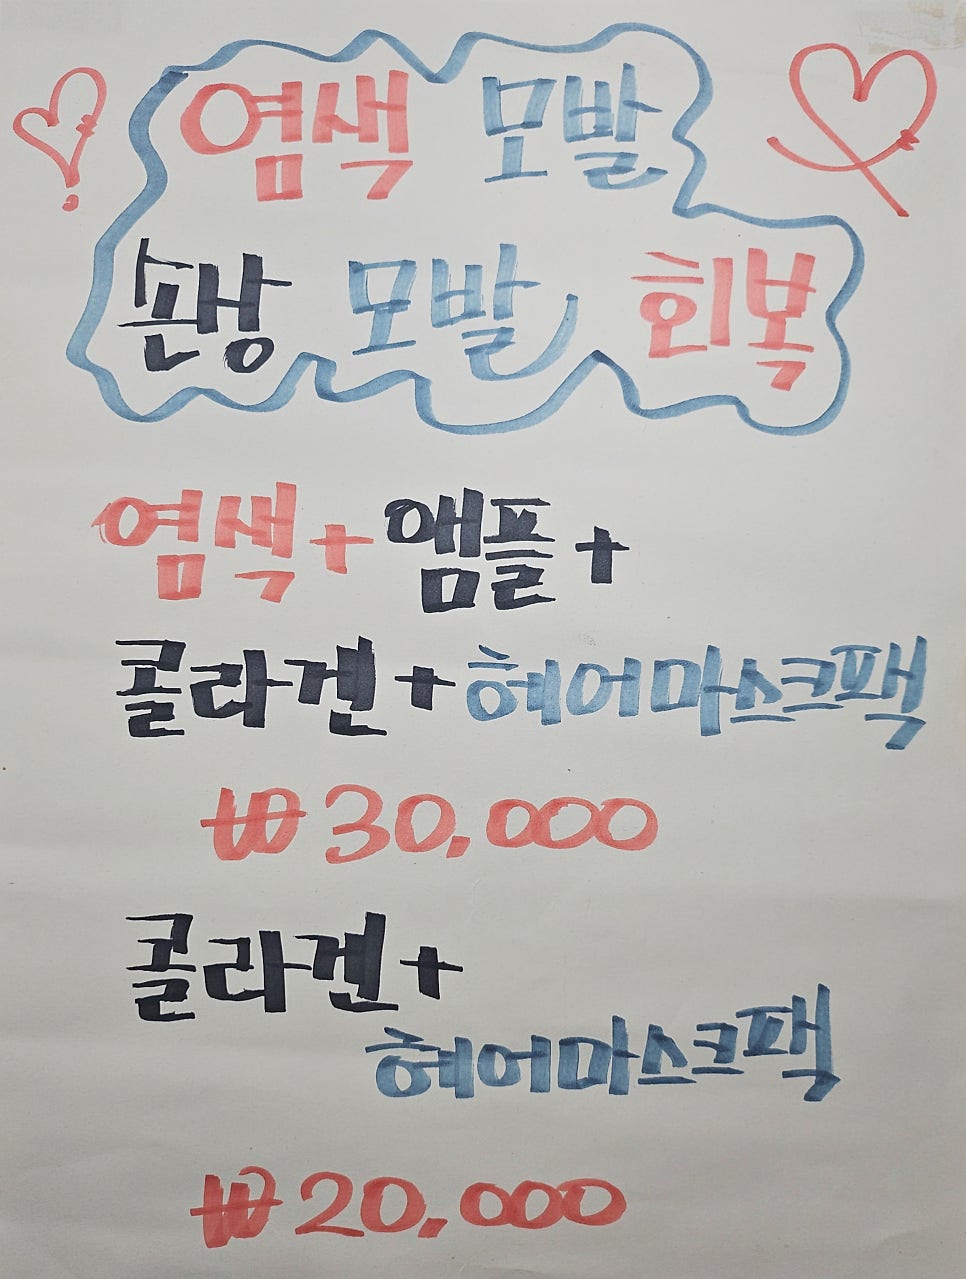 염색 모발
손상 모발 회복
염색+앰플+
콜라겐+헤어마스크팩
₩30,000
콜라겐+
헤어마스크팩
₩20,000